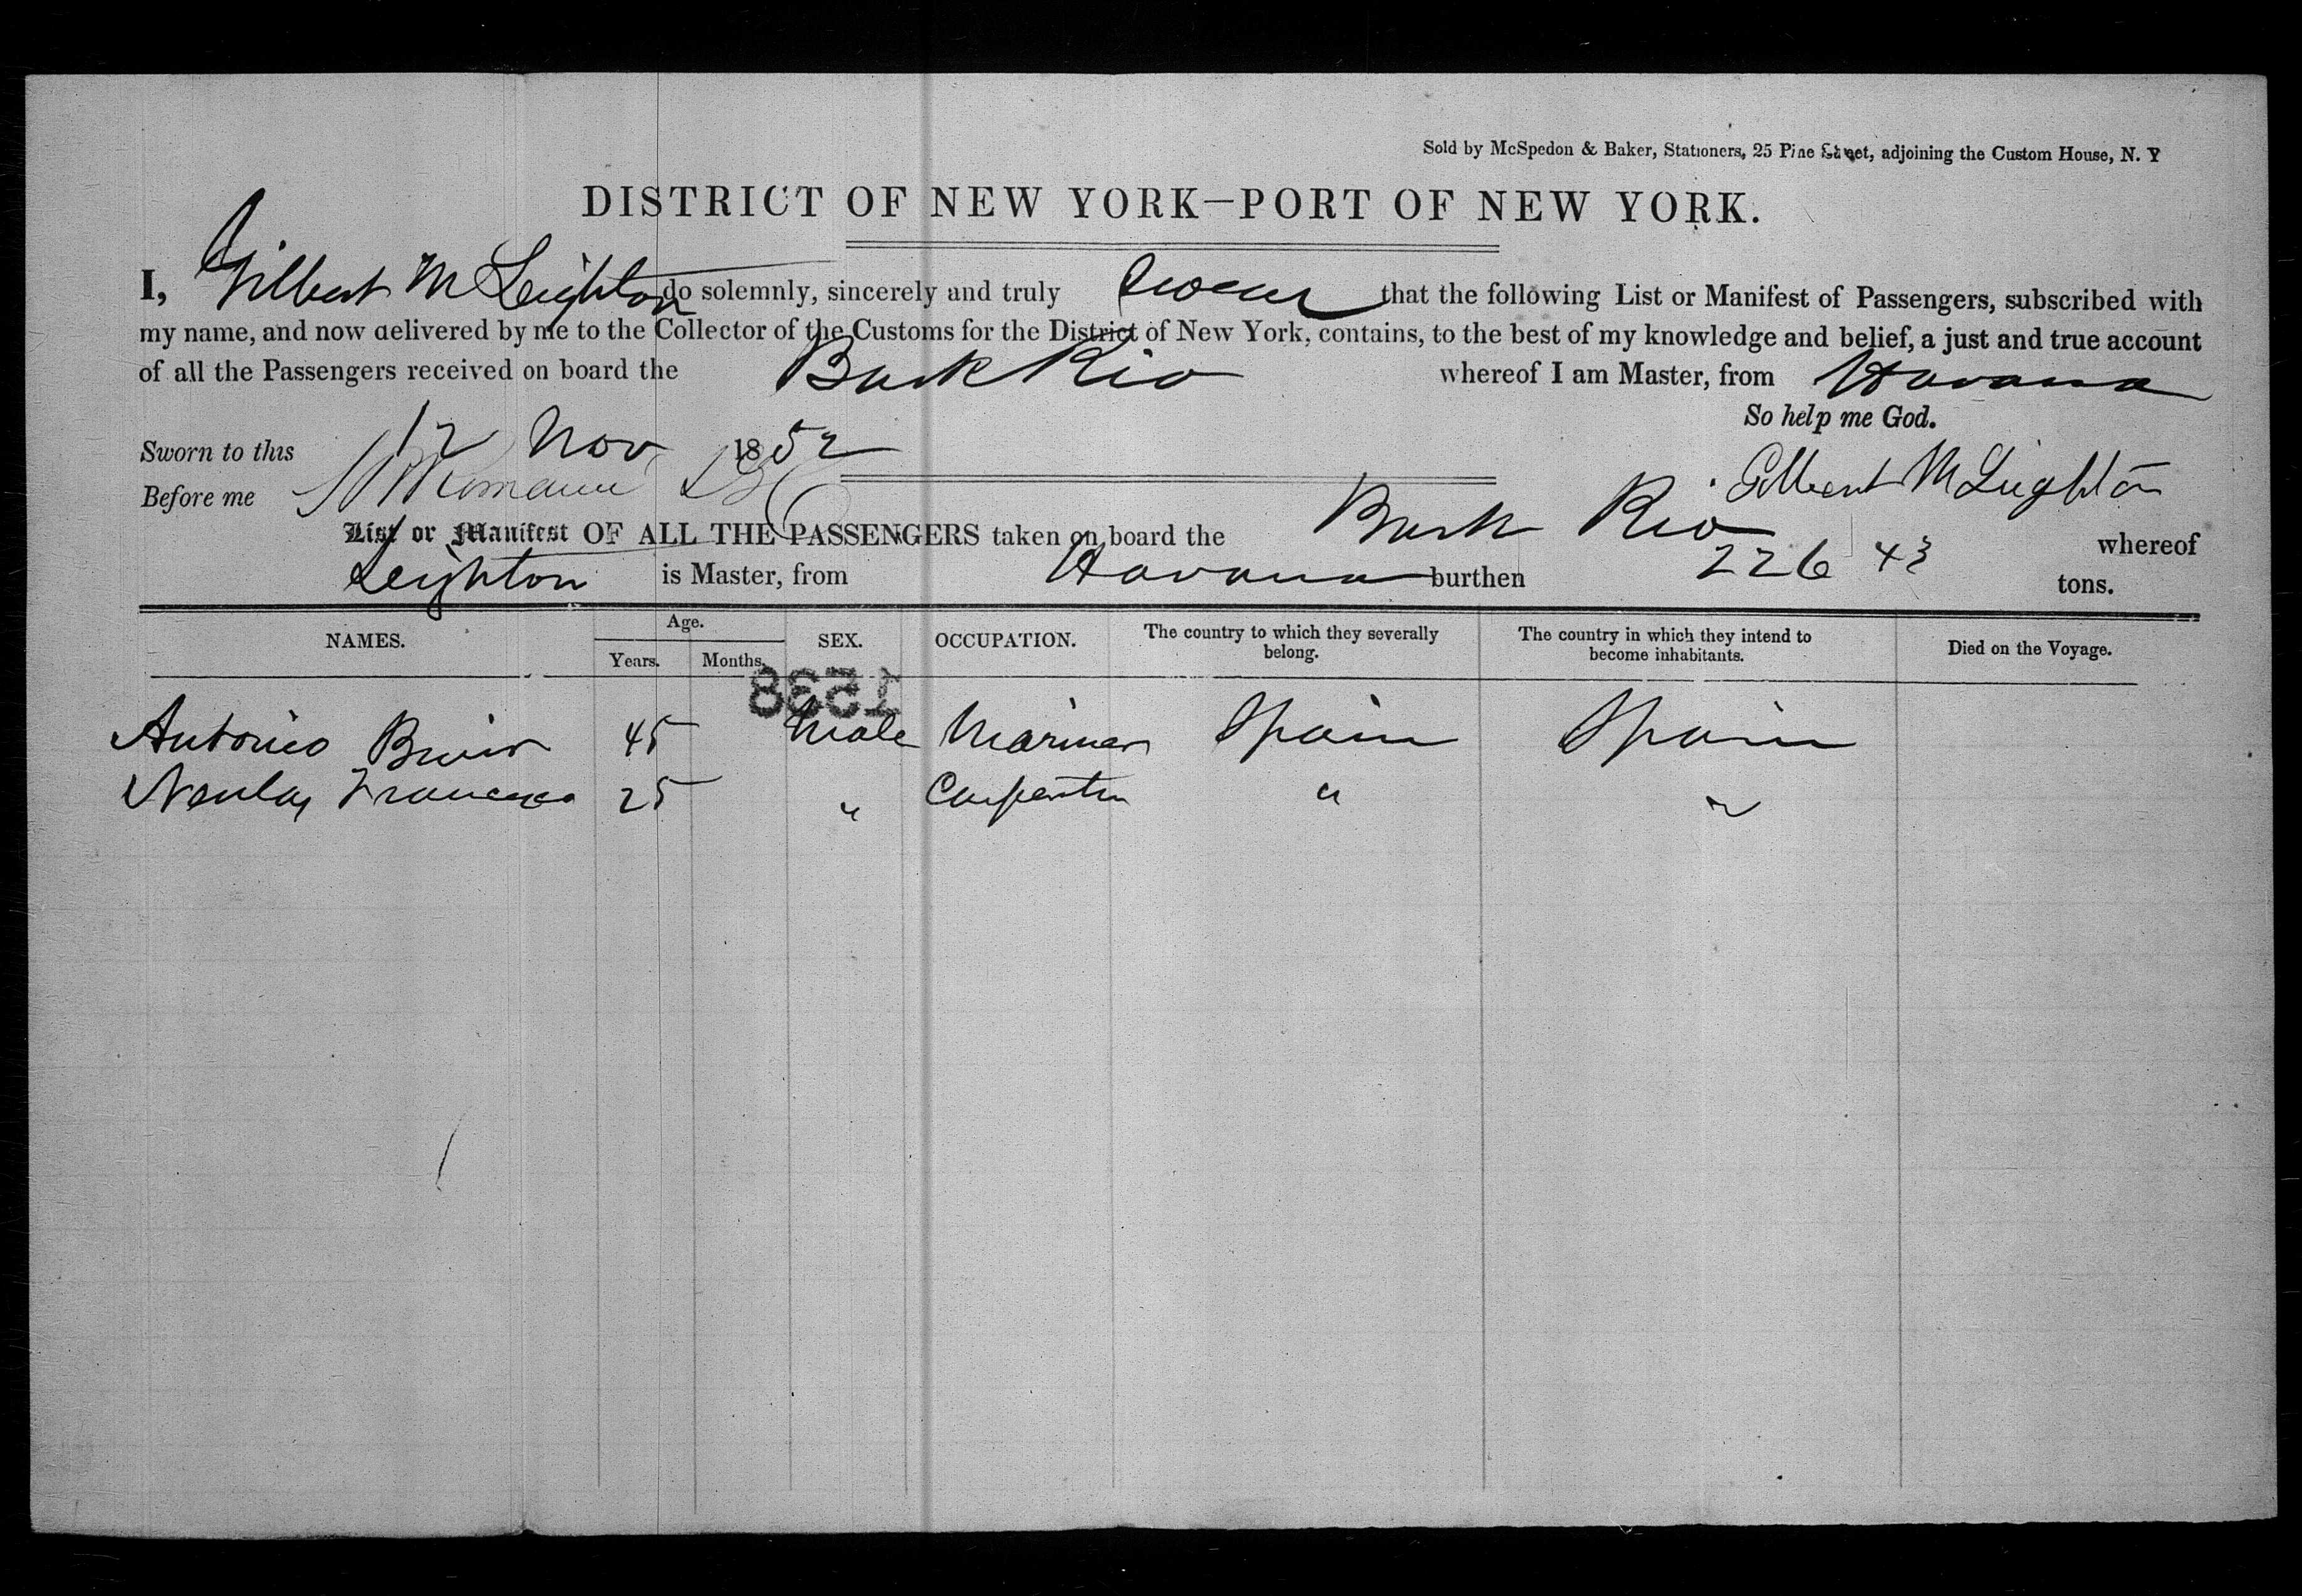 Sold by McSpedon & Baker, Stationers, 25 Pine Street, adjoining the Custom House, N. Y
DISTRICT OF NEW YORK—PORT OF NEW YORK.
I, Gilbert M Leighton do solemnly, sincerely and truly swear that the following List or Manifest of Passengers, subscribed with
my name, and now delivered by me to the Collector of the Customs for the District of New York, contains, to the best of my knowledge and belief, a just and true account
of all the Passengers received on board the Bark Rio whereof I am Master, from Havana
So help me God.
Sworn to this 12 Nov 1852
Before me Gilbert M Leighton
List or Manifest OF ALL THE PASSENGERS taken on board the Bark Rio whereof
Leighton is Master, from Havana burthen 226 43 tons.
NAMES. Age. Years. Months. SEX. OCCUPATION. The country to which they severally belong. The country in which they intend to become inhabitants. Died on the Voyage.
1538
Antonio 45 Male Mariner Spain Spain
25 " Carpenter " "